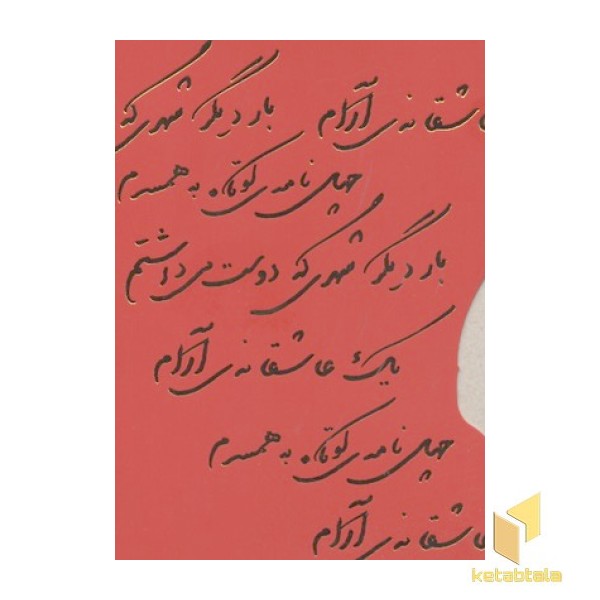 عاشقانه‌ی آرام بار دیگر شهری که
چهل نامه‌ی کوتاه به همسرم
بار دیگر شهری که دوست می‌داشتم
یک عاشقانه‌ی آرام
چهل نامه‌ی کوتاه به همسرم
عاشقانه‌ی آرام
ketabtala